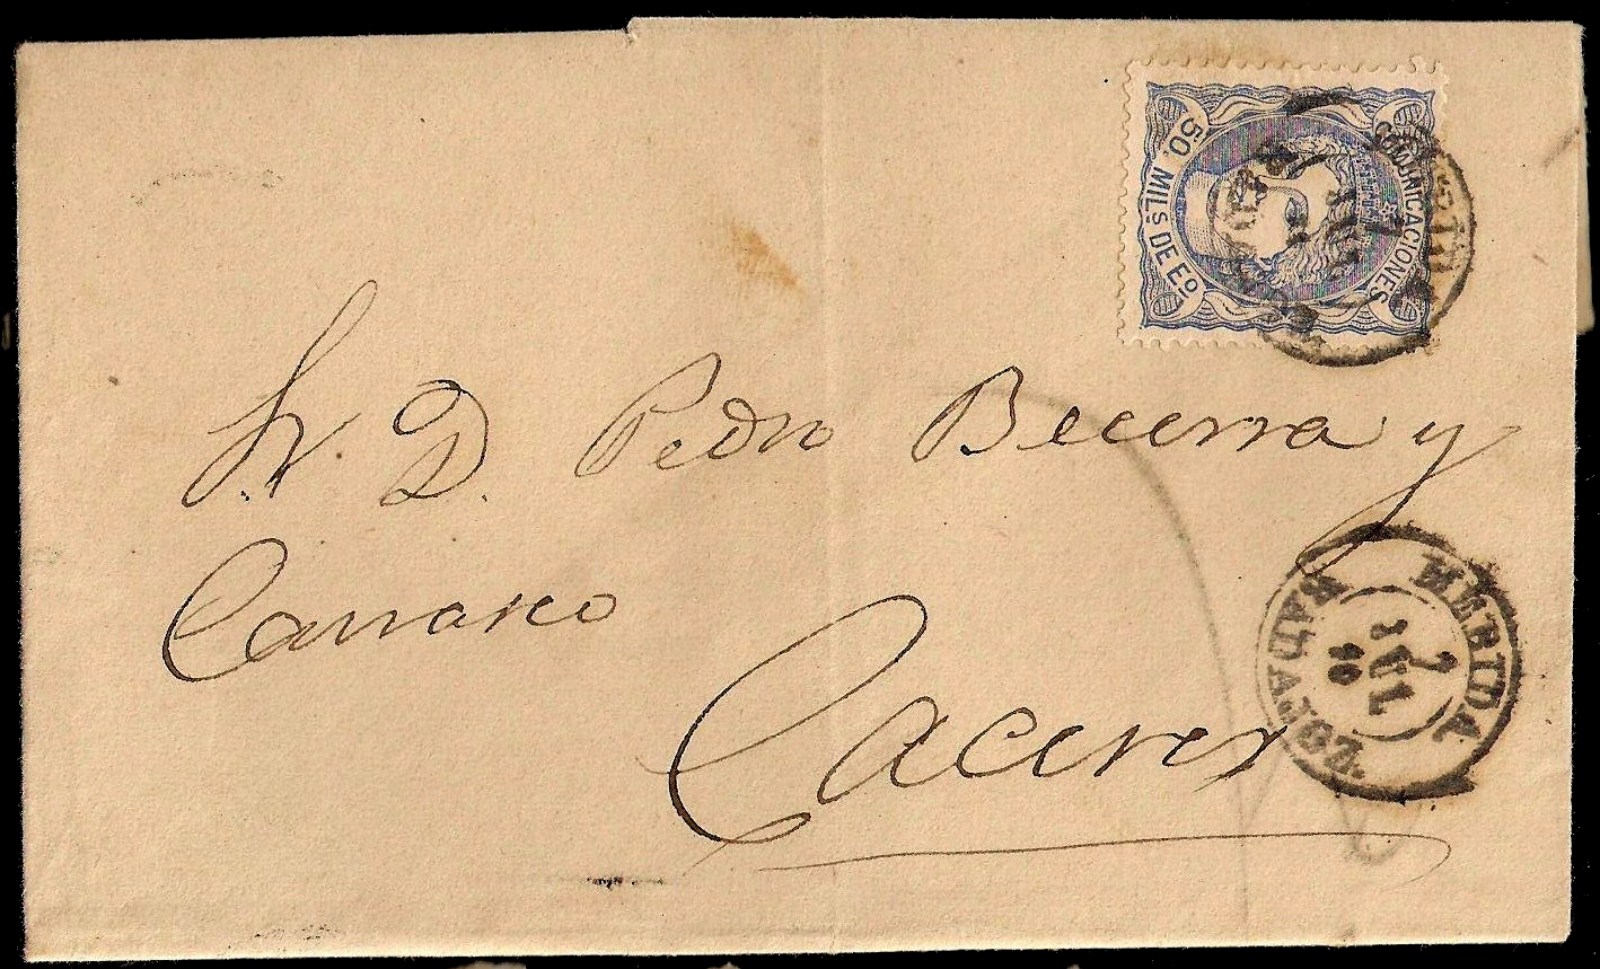 COMUNICACIONES
50. MILs DE Eo
Sr. D. Pedro Becerra y
Carrasco
Caceres
MERIDA
7
JUL
70
BADAJOZ